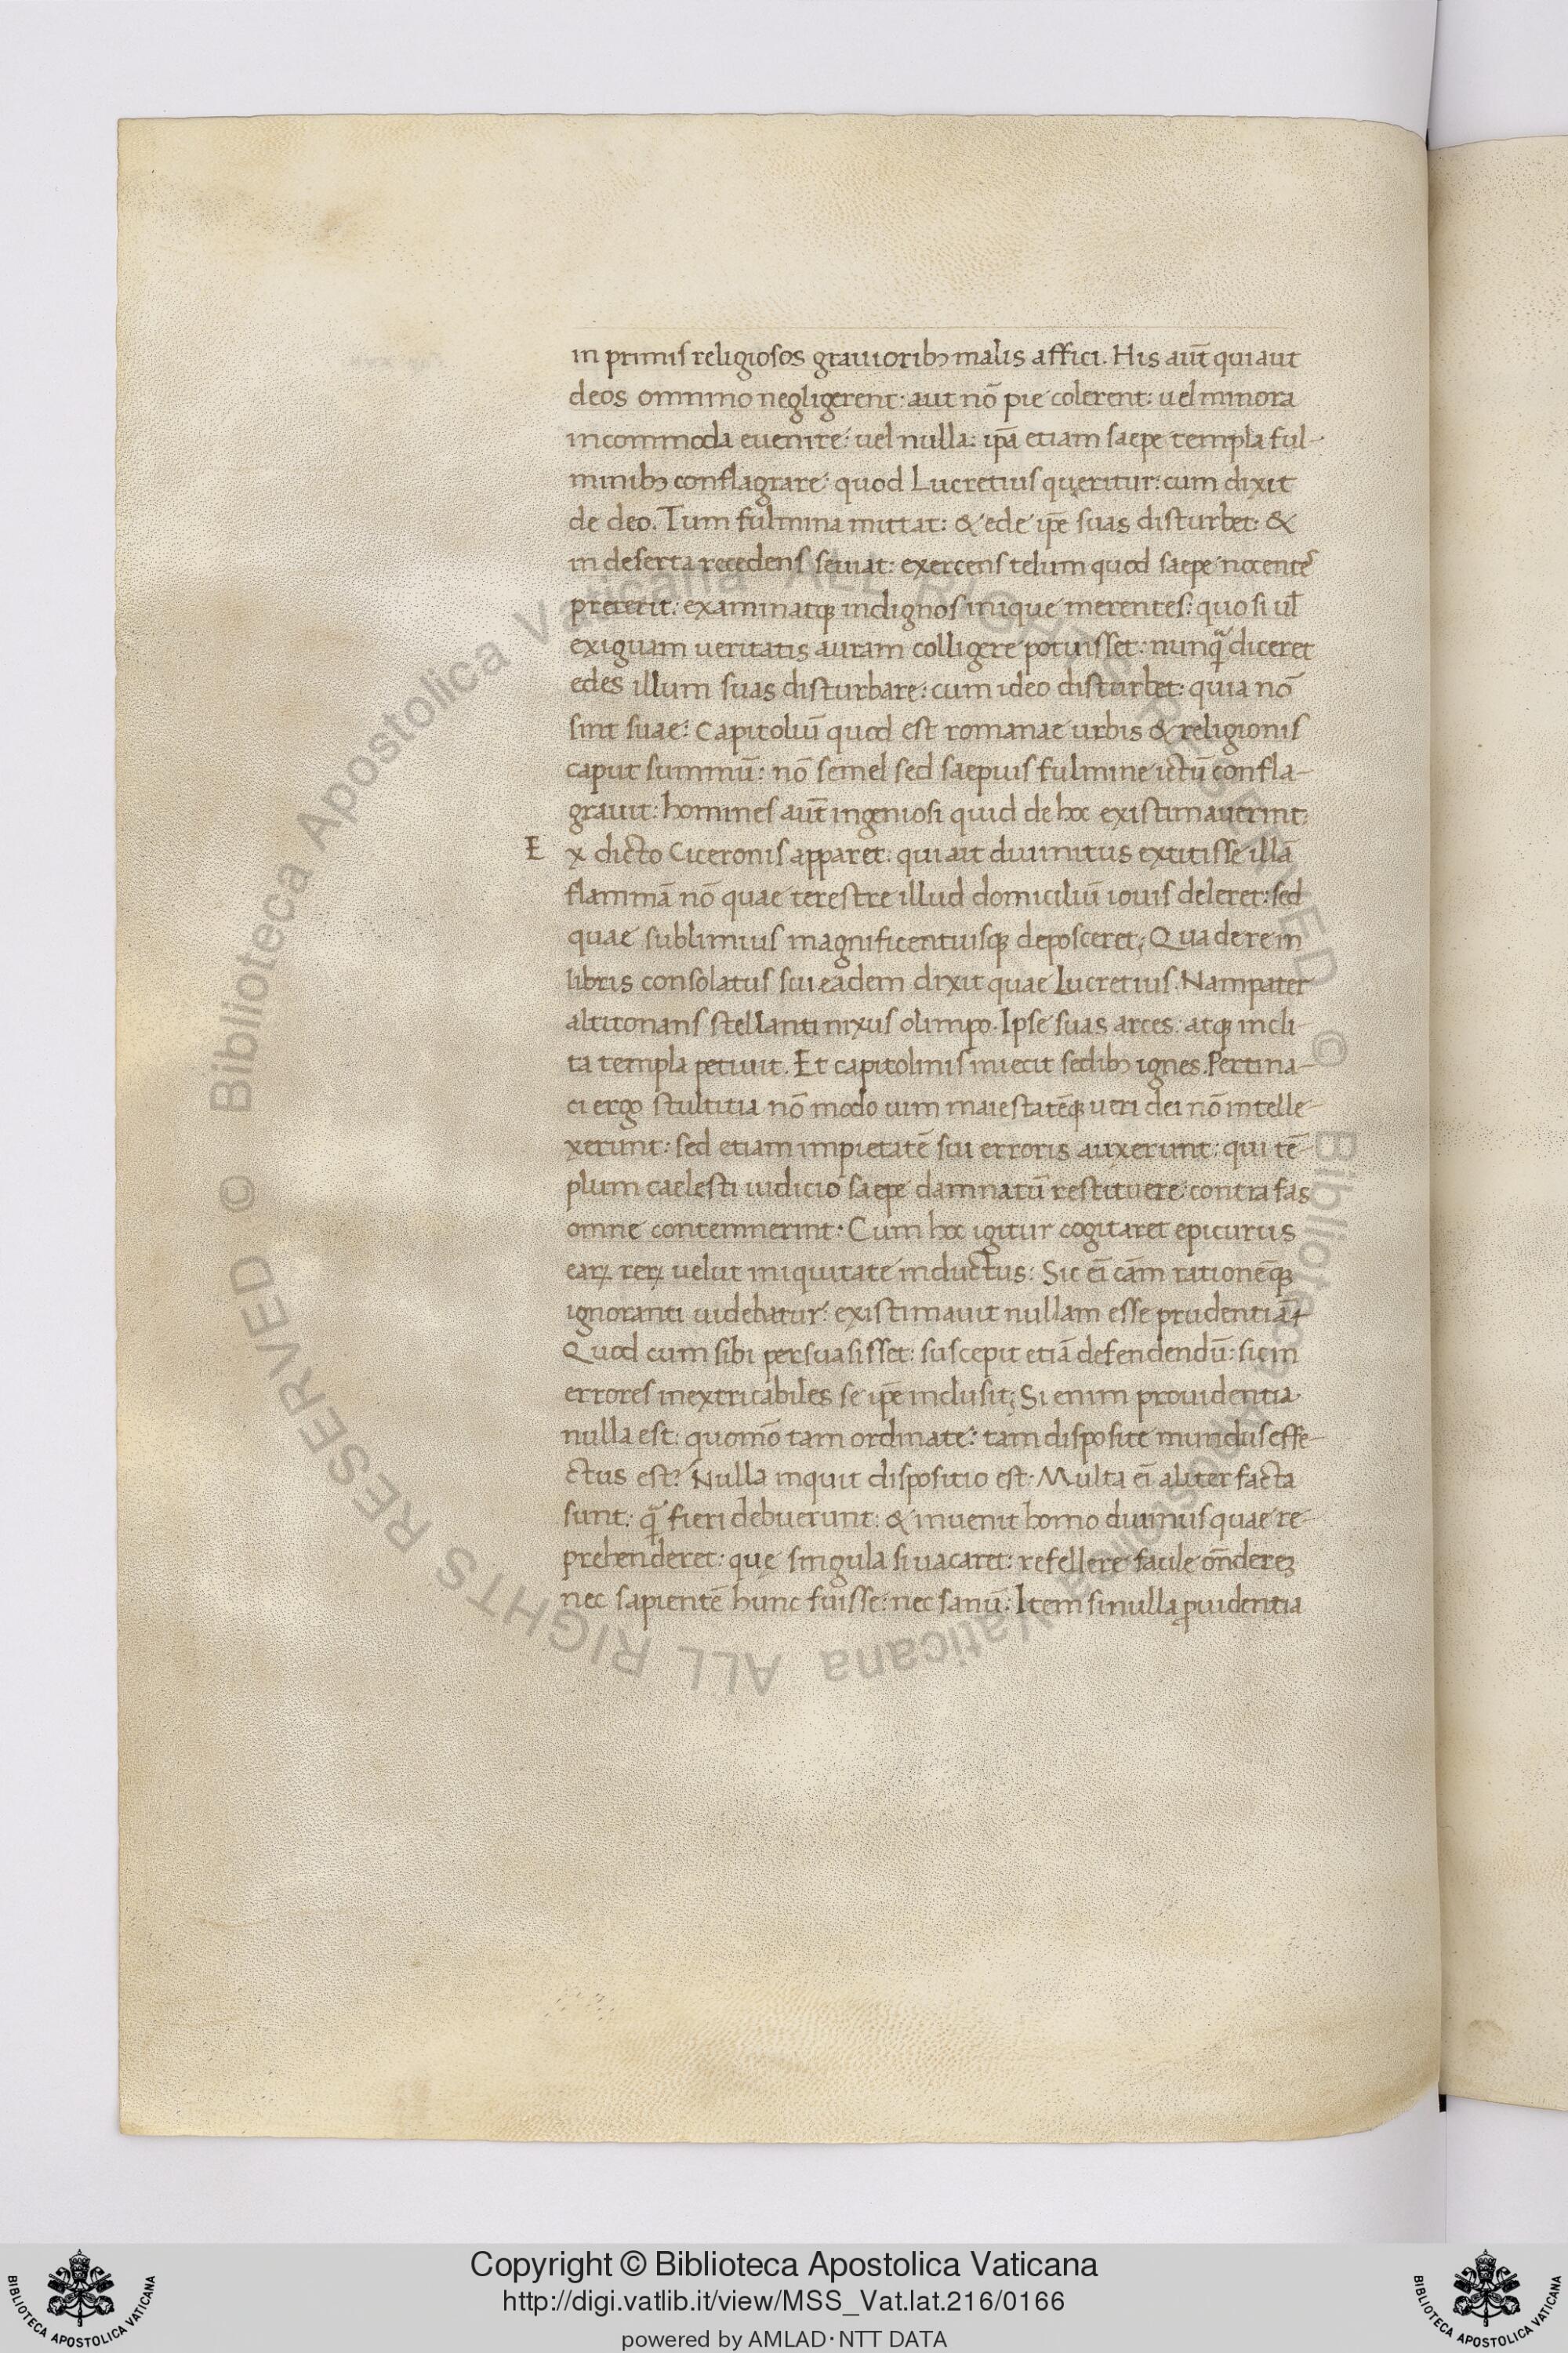 in primis religiosos grauioribꝫ malis affici. His aut̄ qui aut
deos omnino negligerent: aut nō pie colerent: uel minora
incommoda euenire: uel nulla: ip̄a etiam saepe templa ful-
minibꝫ conflagrare: quod Lucretius queritur: cum dixit
de deo. Tum fulmina mittat: & ede ip̄e suas disturbet: &
in deserta recedens seuiat: exercens telum quod saepe nocentes
preterit: examinatqꝫ indignos inique merentes: quo si ul̄
exiguam ueritatis auram colligere potuisset: nunqᷓ diceret
edes illum suas disturbare: cum ideo disturbet: quia nō
sint suae: Capitoliū quod est romanae urbis & religionis
caput summū: nō semel sed saepius fulmine ictū confla-
grauit: homines aut̄ ingeniosi quid de hoc existimauerint:
E x dicto Ciceronis apparet: qui ait diuinitus extitisse illā
flammā nō quae terestre illud domiciliū iouis deleret: sed
quae sublimius magnificentiusqꝫ deposceret; Qua de re in
libris consolatus sui eadem dixit quae Lucretius. Nam pater
altitonans stellanti nixus olimpo. Ipse suas arces: atqꝫ incli-
ta templa petiuit. Et capitolinis iniecit sedibꝫ ignes. Pertina-
ci ergo stultitia nō modo uim maiestatēqꝫ ueri dei nō intelle-
xerunt: sed etiam impietatē sui erroris auxerunt: qui tē-
plum caelesti iudicio saepe damnatū restituere: contra fas
omne contemnerint. Cum hoc igitur cogitaret epicurus
eaꝝ reꝝ uelut iniquitate inductus: Sic ei̅ cām rationēqꝫ
ignoranti uidebatur: existimauit nullam esse prudentiā
Quod cum sibi persuasisset: suscepit etiā defendendū: sic in
errores inextricabiles se ip̄e inclusit; Si enim prouidentia
nulla est: quomō tam ordinate: tam disposite mundus effe-
ctus est? Nulla inquit dispositio est. Multa ei̅ aliter facta
sunt: qᷓ fieri debuerunt: & inuenit homo diuinus quae re-
prehenderet: quę singula si uacaret: refellere facile on̄dereꝫ
nec sapientē hunc fuisse: nec sanū: Item si nulla ꝓuidentia
Copyright © Biblioteca Apostolica Vaticana
http://digi.vatlib.it/view/MSS_Vat.lat.216/0166
powered by AMLAD·NTT DATA
BIBLIOTECA APOSTOLICA VATICANA
BIBLIOTECA APOSTOLICA VATICANA
© Biblioteca Apostolica Vaticana ALL RIGHTS RESERVED © Biblioteca Apostolica Vaticana ALL RIGHTS RESERVED